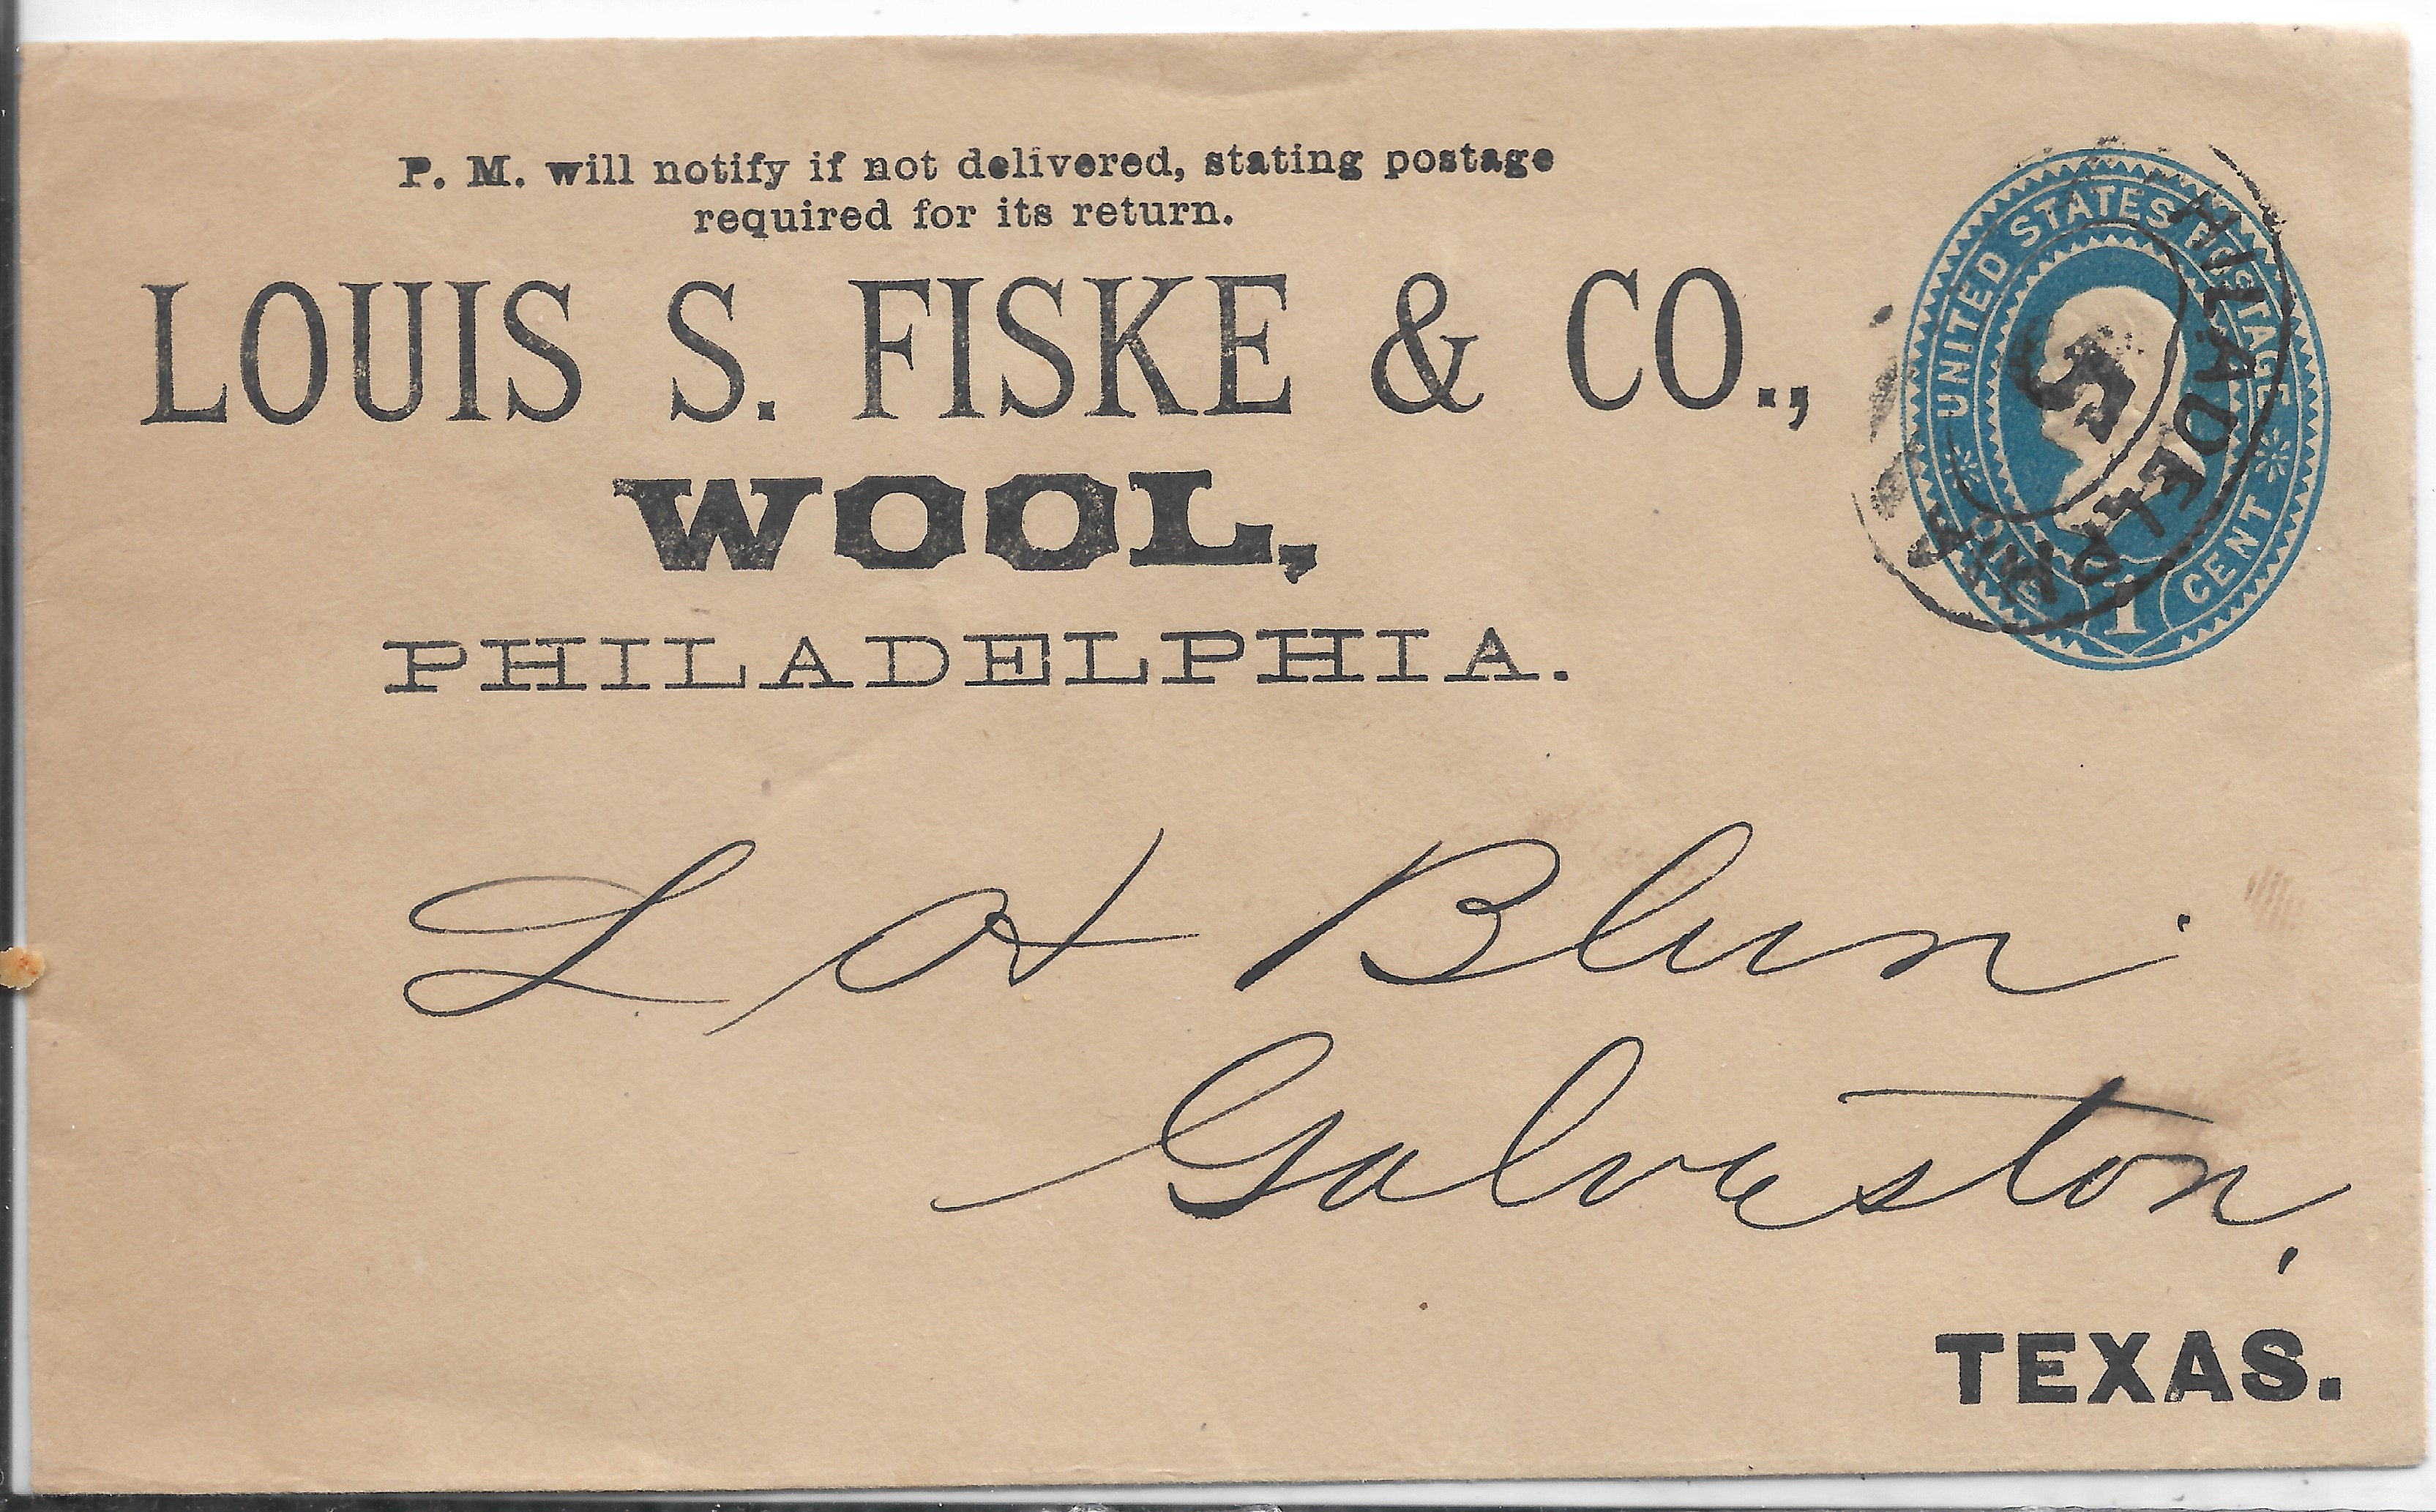 P. M. will notify if not delivered, stating postage
required for its return.
LOUIS S. FISKE & CO.,
WOOL,
PHILADELPHIA.
UNITED STATES POSTAGE
ONE 1 CENT
PHILADELPHIA
S
L H Blum.
Galveston,
TEXAS.